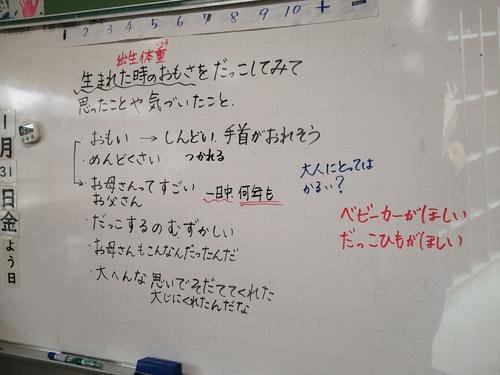 1 2 3 4 5 6 7 8 9 10 + -
出生体重
生まれた時のおもさをだっこしてみて
思ったことや気づいたこと.
・おもい → しんどい. 手首がおれそう
・めんどくさい つかれる
・お母さんってすごい 一日中. 何年も
お父さん
大人にとっては
かるい?
・だっこするのむずかしい
ベビーカーがほしい
だっこひもがほしい
・お母さんもこんなんだったんだ
・大へんな思いでそだててくれた
大じにくれたんだな
1
月
31
日
金
よう日